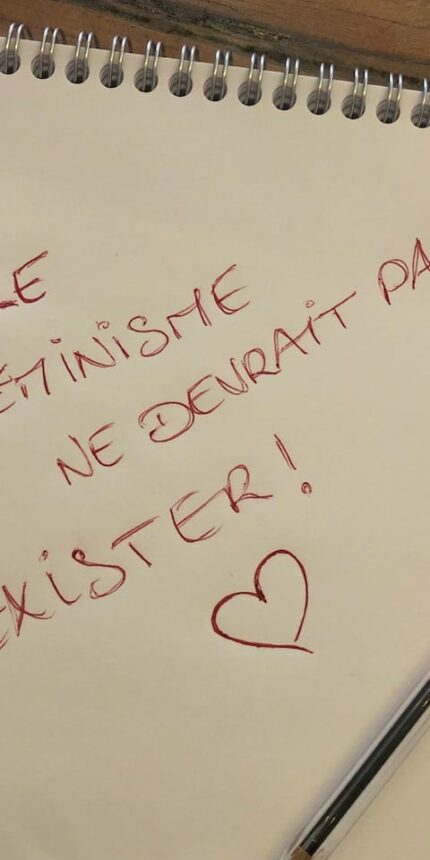 LE
FEMINISME
NE DEVRAIT PAS
EXISTER !